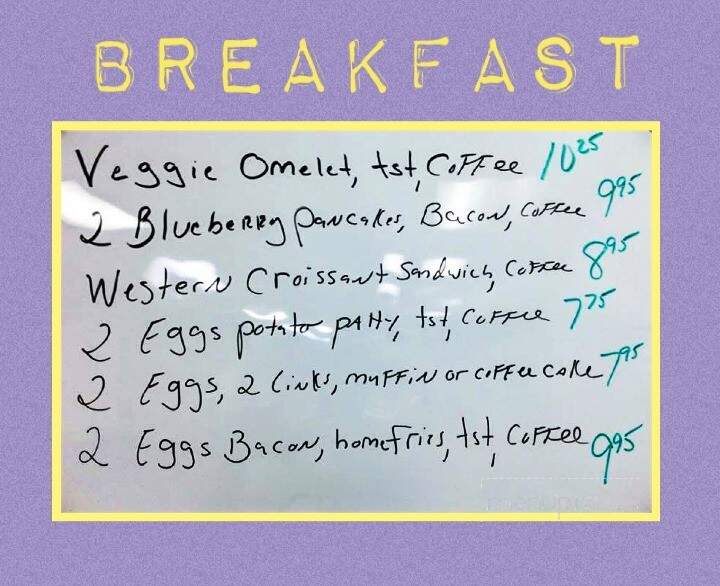 BREAKFAST
Veggie Omelet, tst, Coffee 10.25
2 Blueberry Pancakes, Bacon, Coffee 9.95
Western Croissant Sandwich, Coffee 8.95
2 Eggs potato patty, tst, Coffee 7.75
2 Eggs, 2 Links, muffin or coffee cake 7.95
2 Eggs Bacon, homefries, tst, Coffee 9.95